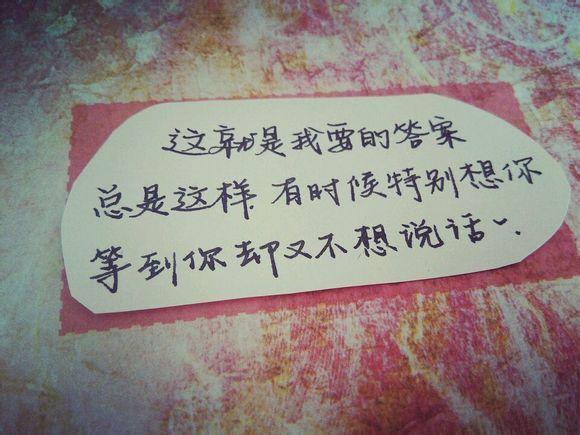 这就是我要的答案
总是这样.有时候特别想你
等到你却又不想说话~.